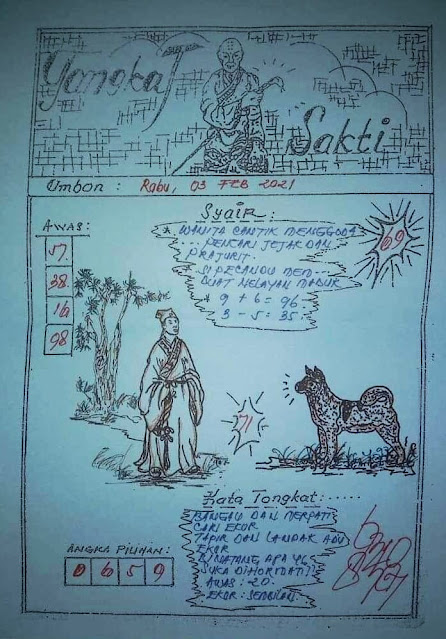 Tongkat
Sakti
Umbon : Rabu, 03 FEB 2021
Syair:
AWAS:
57
38
16
98
* WANITA CANTIK MENGGODA
... PENCARI JEJAK DAN
PRAJURIT.
* SI PECANDU MEM...
BUAT NELAYAN MABUK
* 9 + 6 = 96.
3 - 5 : 35.
09
71
Kata Tongkat:.....
BANGAU DAN MERPATI
CARI EKOR
TAPIR DAN LANDAK ADU
EKOR
BINATANG APA YG
SUKA DIHORMATI?
AWAS : 20.
EKOR : SEMBILAN
ANGKA PILIHAN:
0 6 5 9